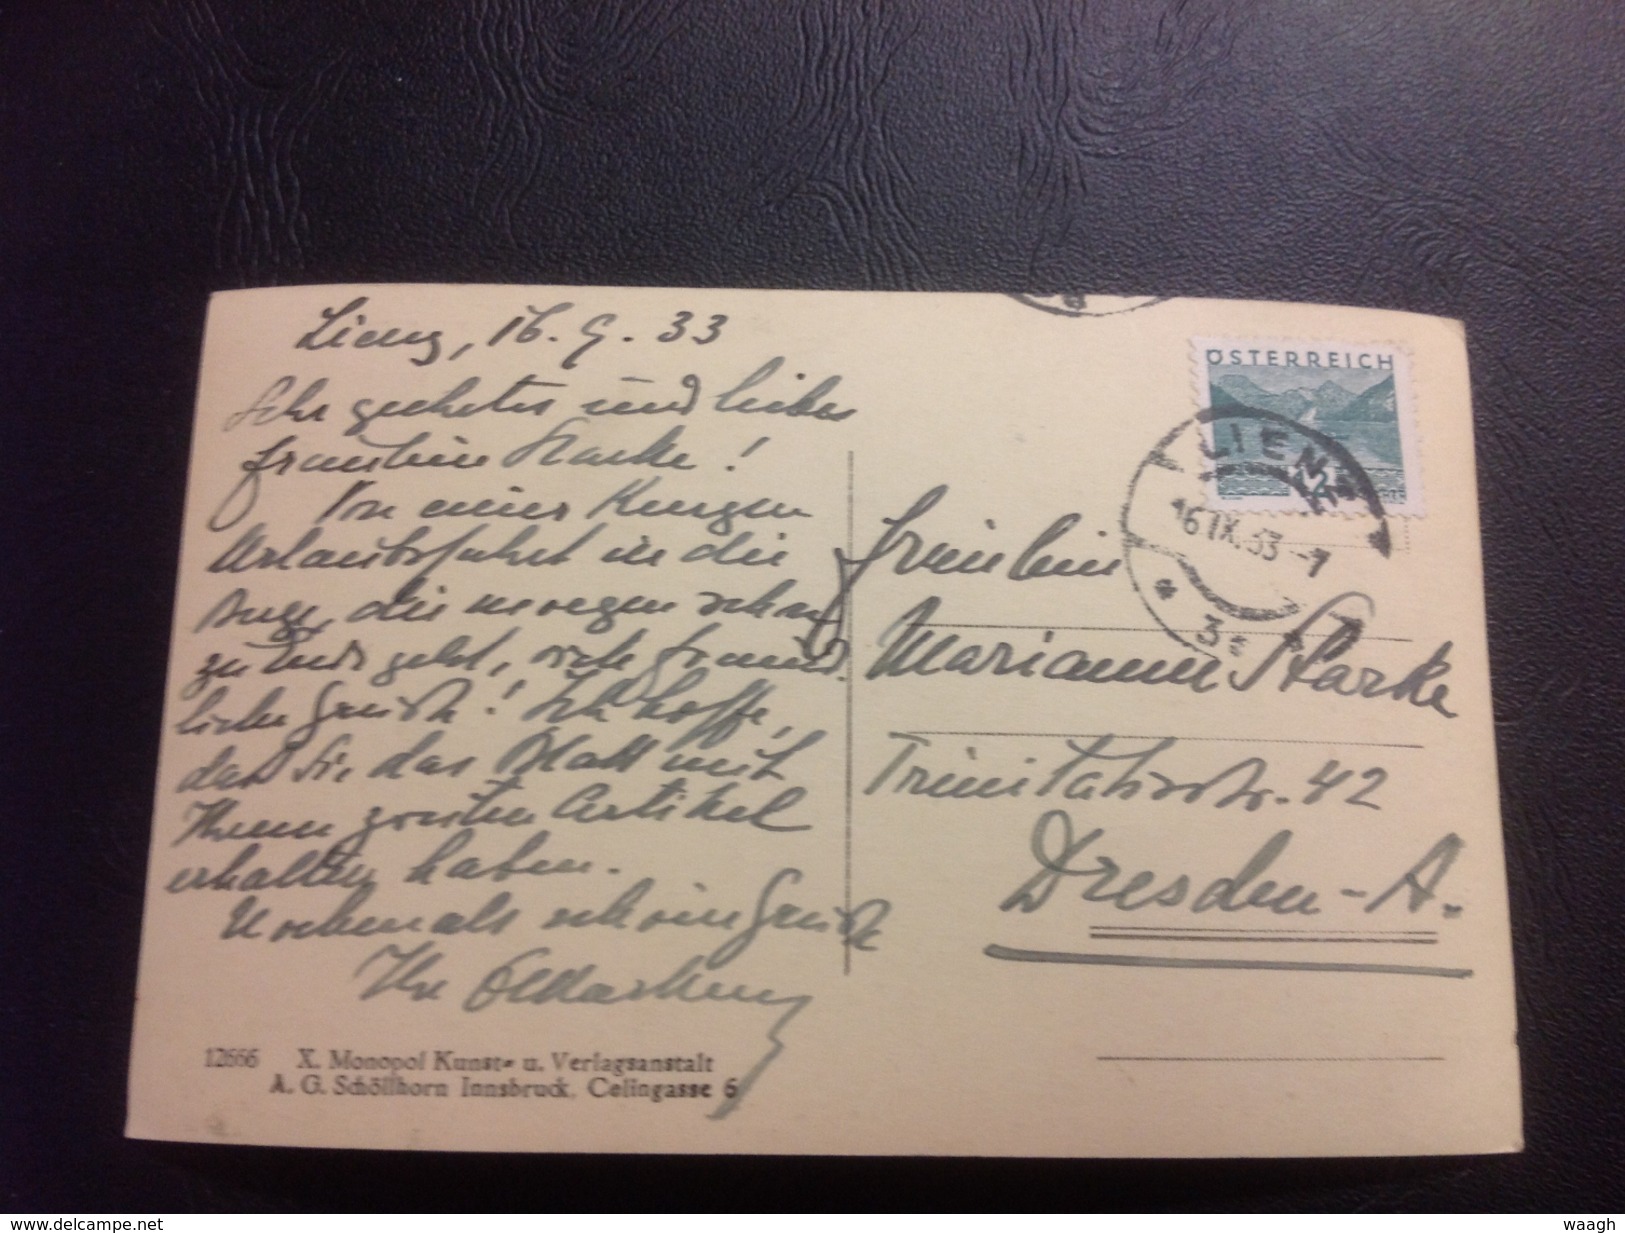 Lienz, 16. 9. 33
Sehr geehrtes und liebes
Fräulein Starke!
Von meiner kurzen
Urlaubsfahrt in die
Berge, die morgen schon
zu Ende geht, viele freund-
liche Grüße! Ich hoffe,
daß Sie das Blatt mit
Ihrem zweiten Artikel
erhalten haben.
Nochmals schöne Grüße
Ihr
12666 X. Monopol Kunst- u. Verlagsanstalt
A. G. Schöllhorn Innsbruck, Celingasse 6
ÖSTERREICH
12
LIENZ
16. IX. 33 - 7
* 3a *
Fräulein
Marianne Starke
Trinitatisstr. 42
Dresden-A.
delcampe.net
waagh